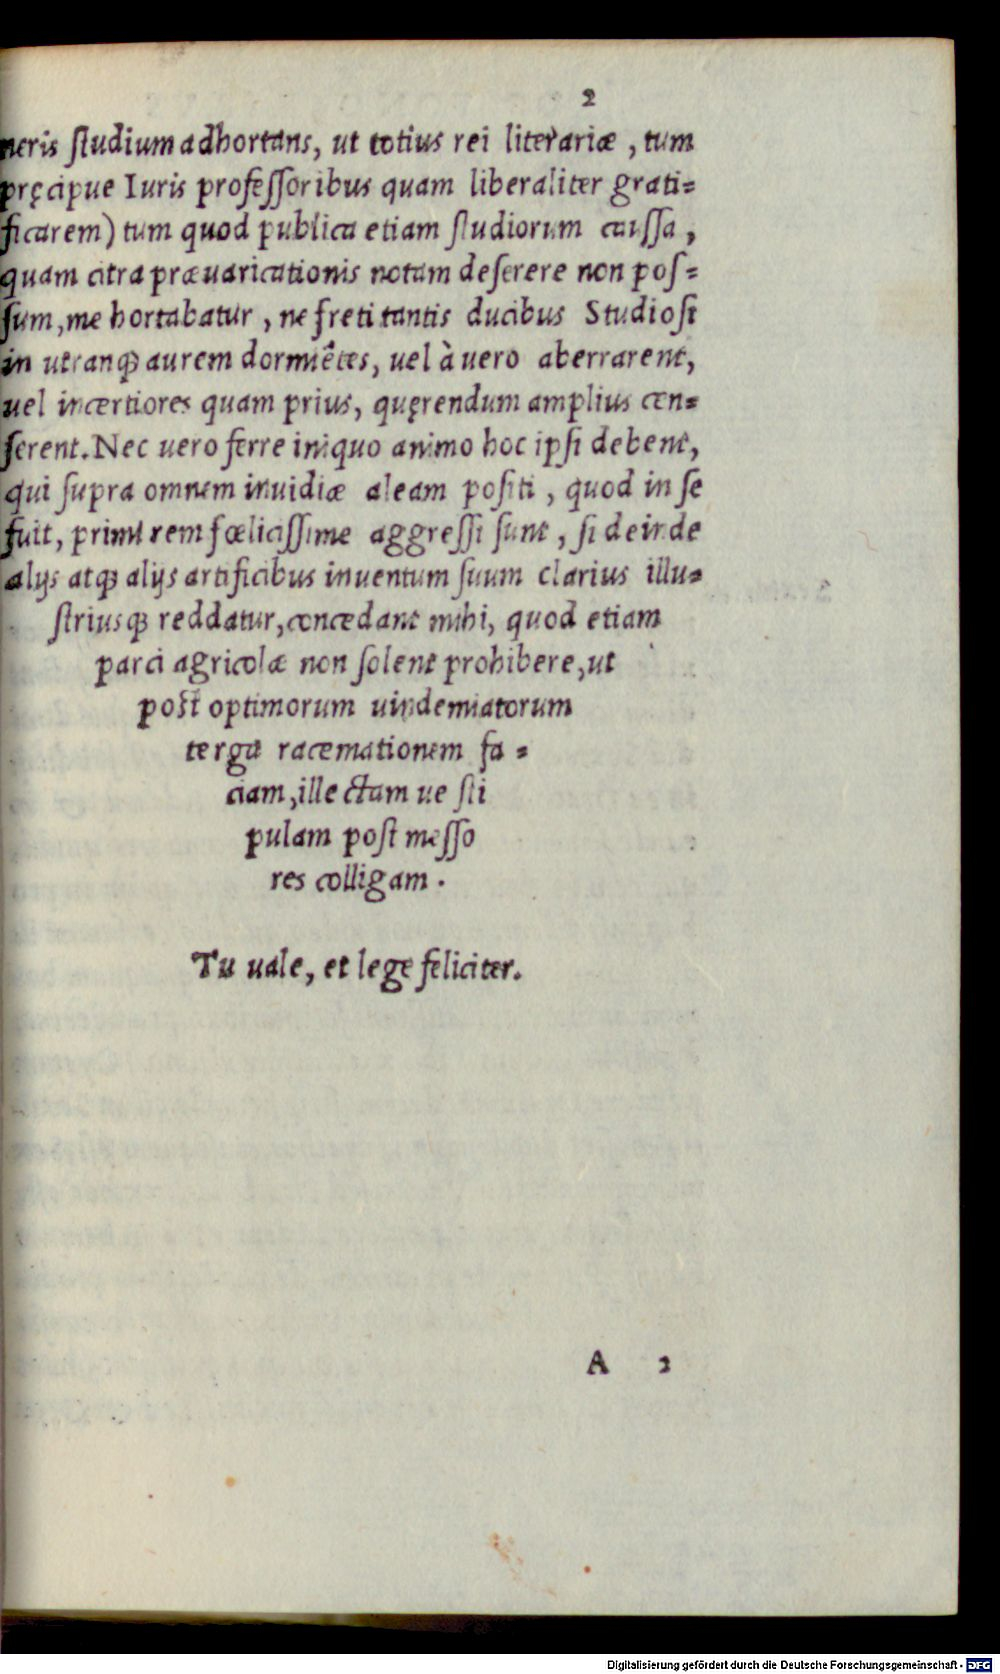 2
neris ſtudium adhortans, ut totius rei literariæ, tum
pręcipue Iuris profeſſoribus quam liberaliter grati=
ficarem) tum quod publica etiam ſtudiorum cauſſa,
quam citra præuaricationis notam deſerere non poſ=
ſum, me hortabatur, ne freti tantis ducibus Studioſi
in utranq; aurem dormiētes, uel à uero aberrarent,
uel incertiores quam prius, quęrendum amplius cen=
ſerent. Nec uero ferre iniquo animo hoc ipſi debent,
qui ſupra omnem inuidiæ aleam poſiti, quod in ſe
fuit, primi rem fœliciſſime aggreſſi ſunt, ſi deinde
alijs atq; alijs artificibus inuentum ſuum clarius illu=
ſtriusq; reddatur, concedant mihi, quod etiam
parci agricolæ non ſolent prohibere, ut
poſt optimorum uindemiatorum
terga racemationem fa=
ciam, illectam ue ſti
pulam poſt meſſo
res colligam.
Tu uale, et lege feliciter.
A 2
Digitalisierung gefördert durch die Deutsche Forschungsgemeinschaft - DFG